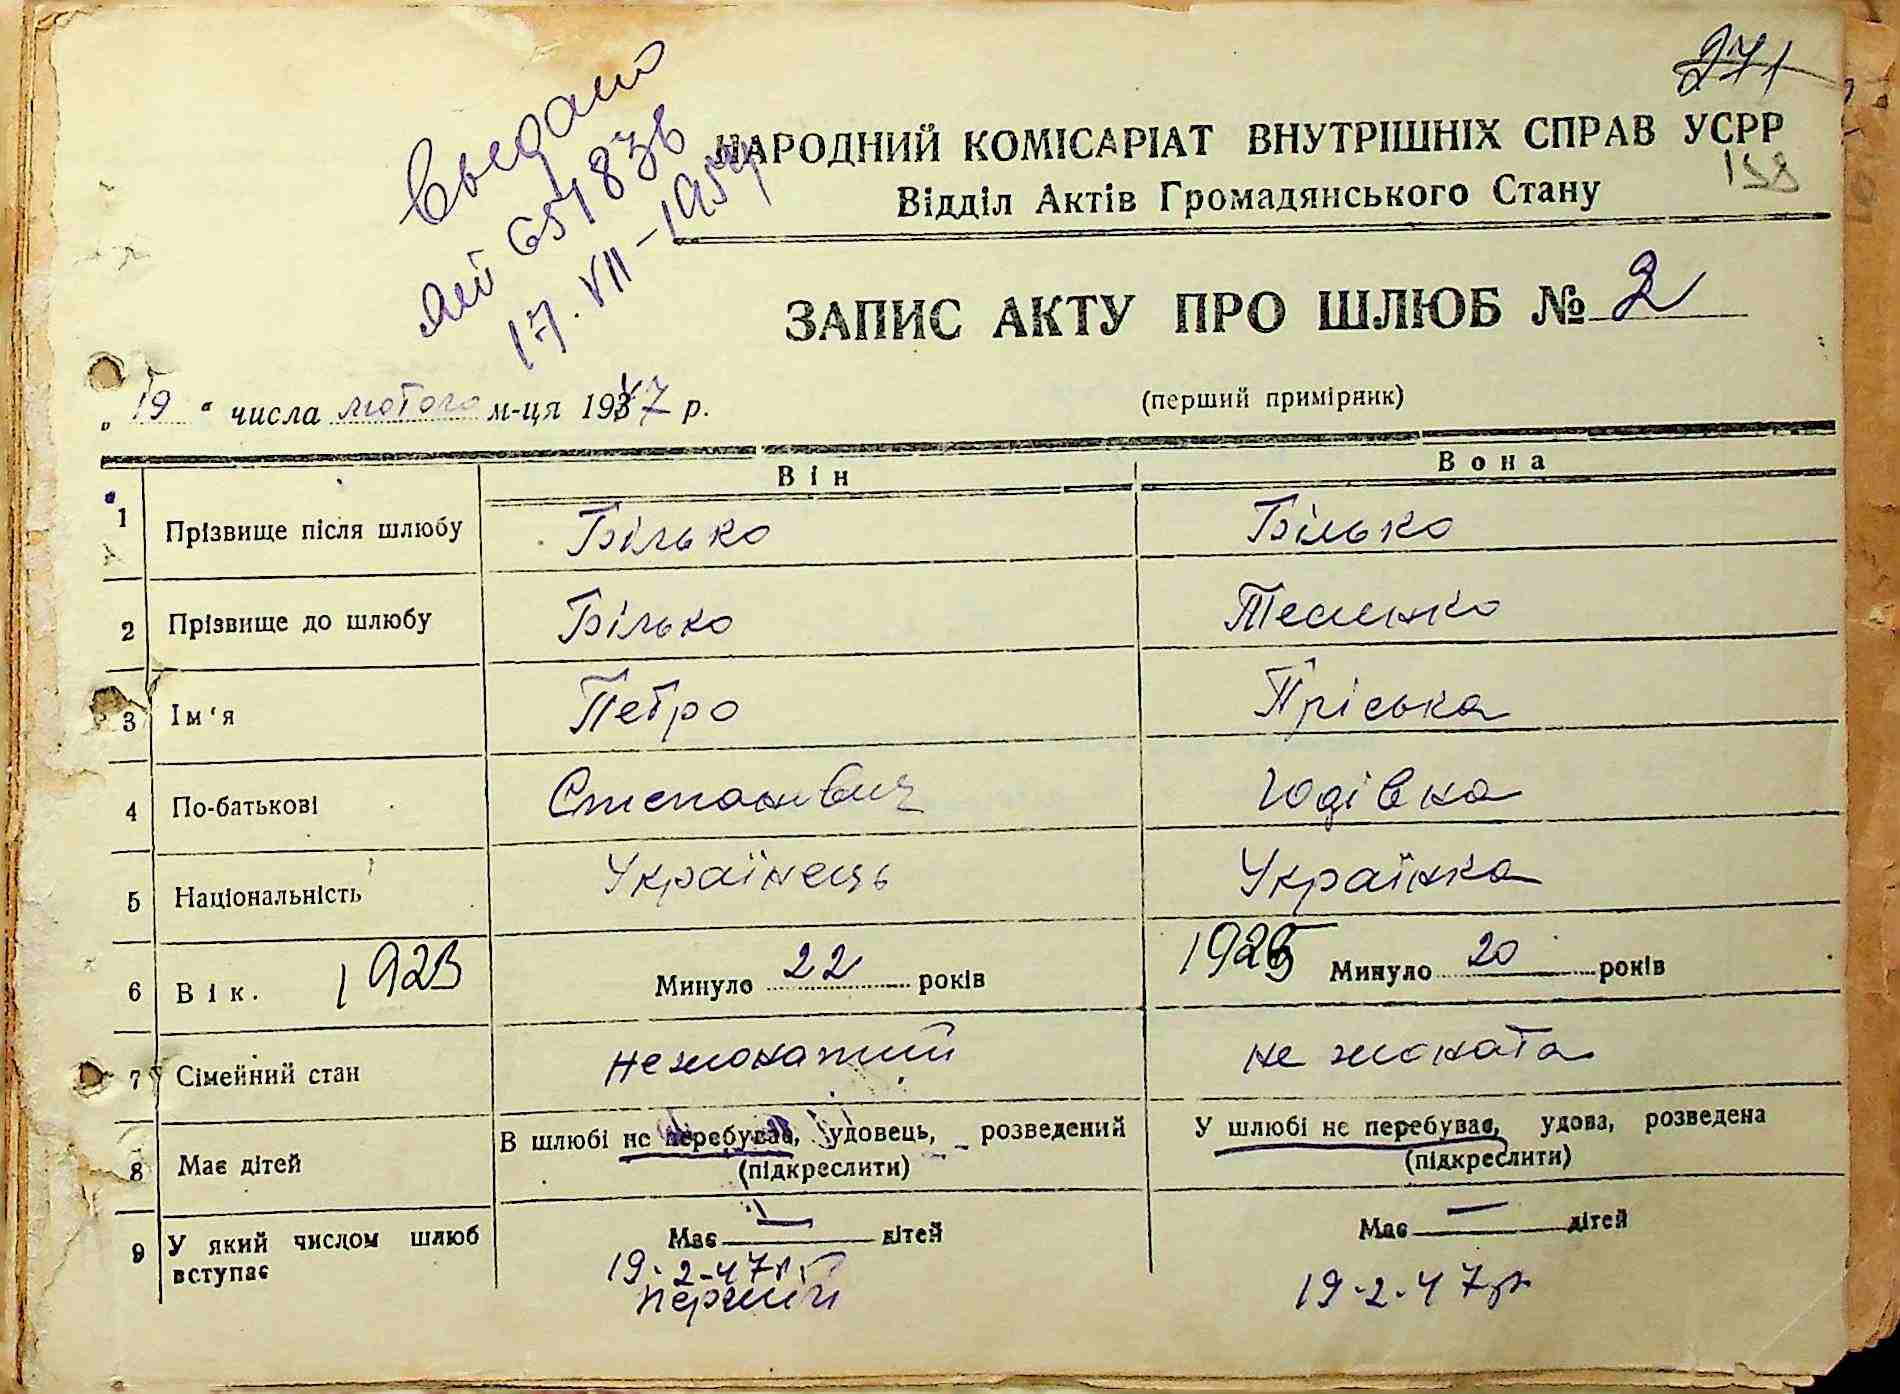 271
НАРОДНИЙ КОМІСАРІАТ ВНУТРІШНІХ СПРАВ УСРР
138
Відділ Актів Громадянського Стану
651836
17.VII-1954
ЗАПИС АКТУ ПРО ШЛЮБ № 2
„19“ числа лютого м-ця 1947 р.
(перший примірник)
Він Вона
1 Прізвище після шлюбу Білько Білько
2 Прізвище до шлюбу Білько Тесленко
3 Ім'я Петро Пріська
4 По-батькові Степанович Юдівна
5 Національність Українець Українка
6 Вік. 1923 Минуло 22 років 1925 Минуло 20 років
7 Сімейний стан не жонатий не жоната
В шлюбі не перебуває, удовець, розведений У шлюбі не перебуває, удова, розведена
(підкреслити) (підкреслити)
8 Має дітей
Має — дітей Має — дітей
9 У який числом шлюб вступає
19-2-47 р. 19-2-47 р
перший